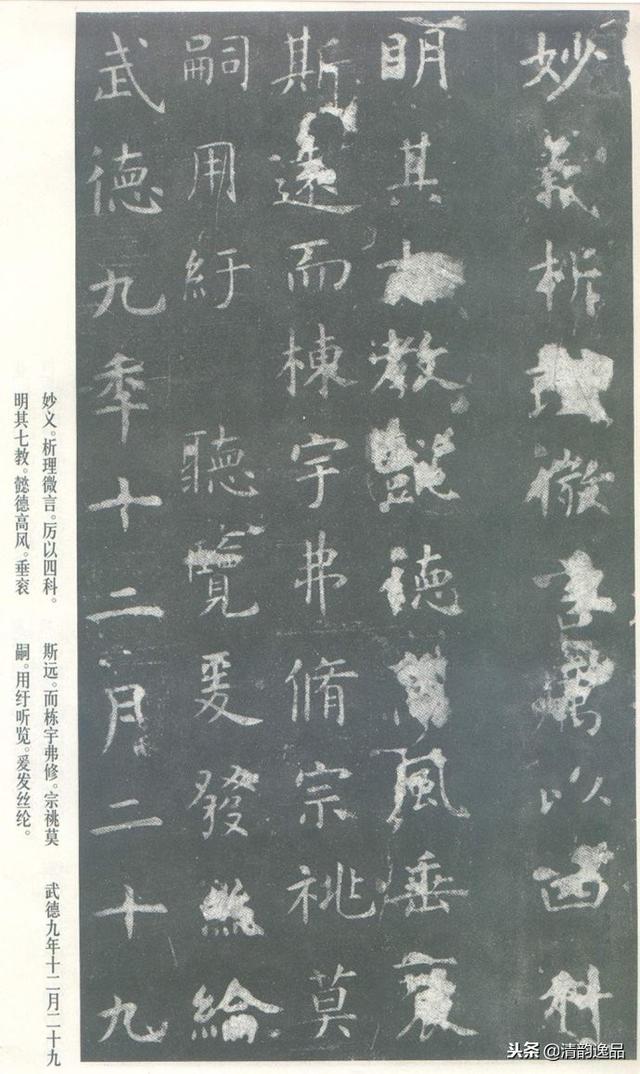 妙義析理微言厲以四科
明其七教懿德高風垂裒
斯遠而棟宇弗脩宗祧莫
嗣用紆聽覽爰發絲綸
武德九秊十二月二十九
妙义。析理微言。厉以四科。
明其七教。懿德高风。垂裒
斯远。而栋宇弗修。宗祧莫
嗣。用纡听览。爰发丝纶。
武德九年十二月二十九
头条@清韵逸品